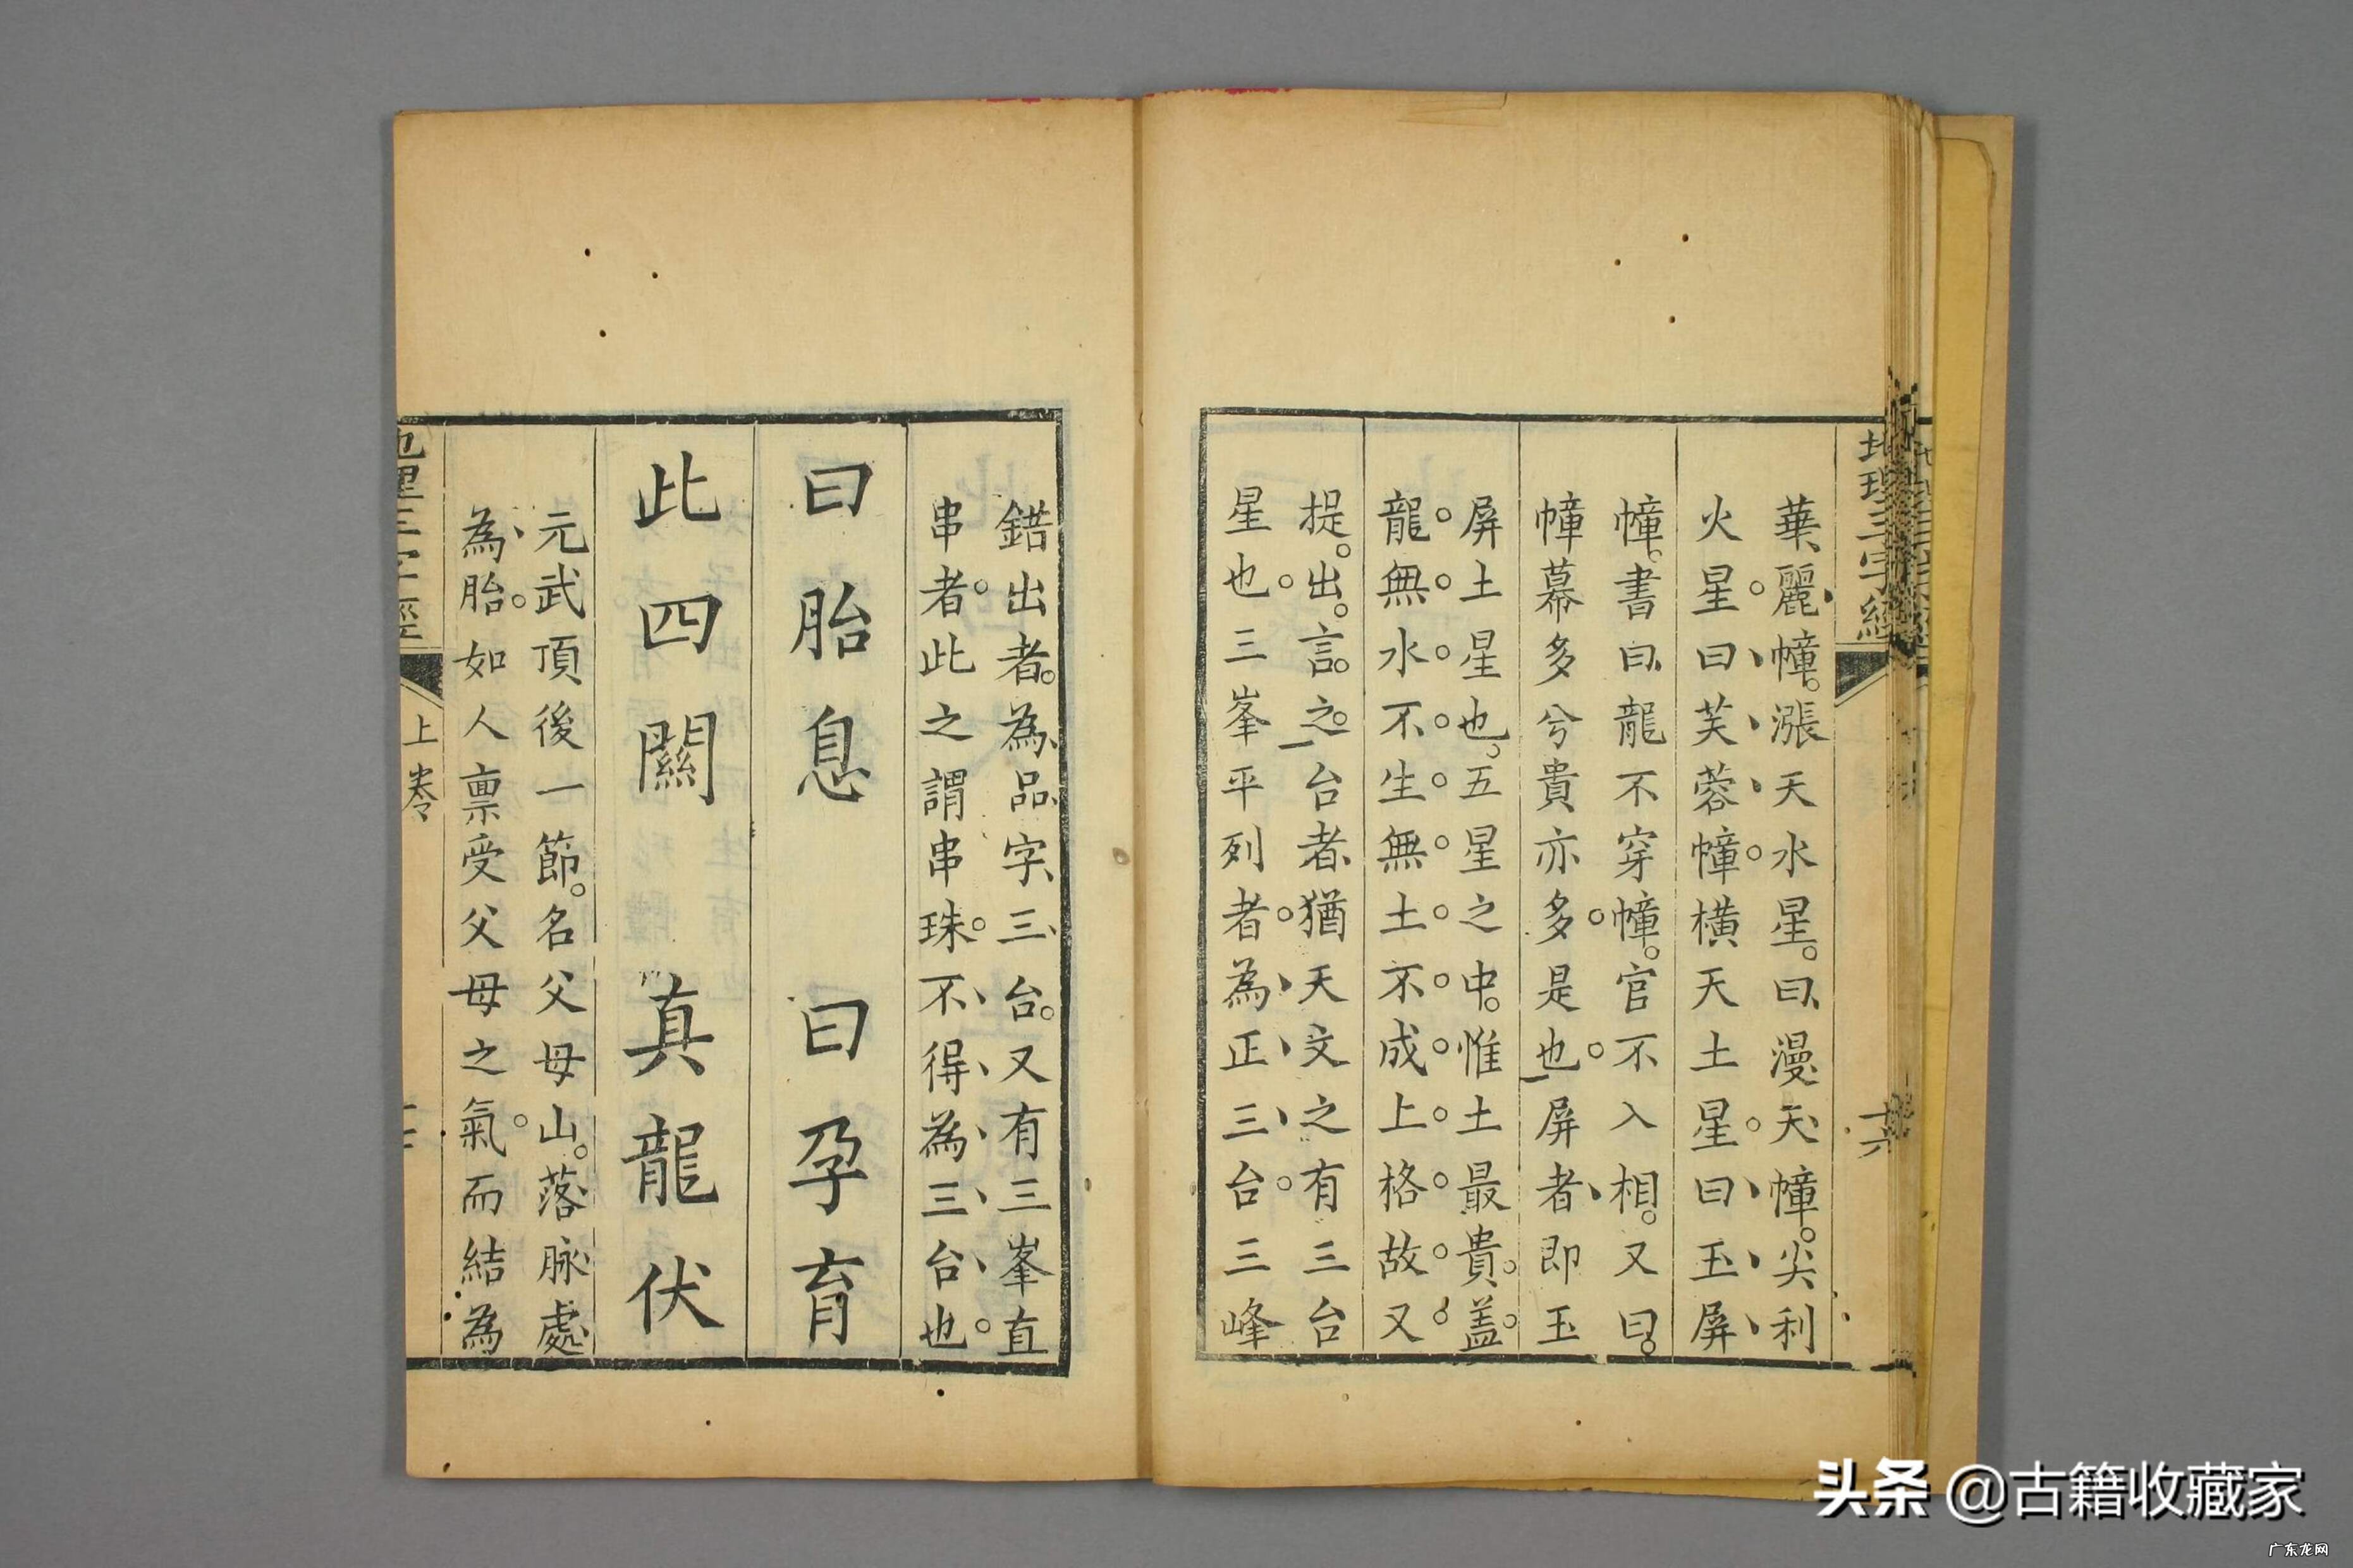 地理三字經
十六
華麗幛漲天水星曰漫天幛尖利
火星曰芙蓉幛橫天土星曰玉屏
幛書曰龍不穿幛官不入相又曰
幛幕多兮貴亦多是也屏者即玉
屏土星也五星之中惟土最貴蓋
龍無水不生無土不成上格故又
提出言之台者猶天文之有三台
星也三峯平列者為正三台三峰
錯出者為品字三台又有三峯直
串者此之謂串珠不得為三台也
曰胎息 曰孕育
此四關 真龍伏
元武頂後一節名父母山落脉處
為胎如人禀受父母之氣而結為
地理三字經
上卷
头条 @古籍收藏家
广东龙网